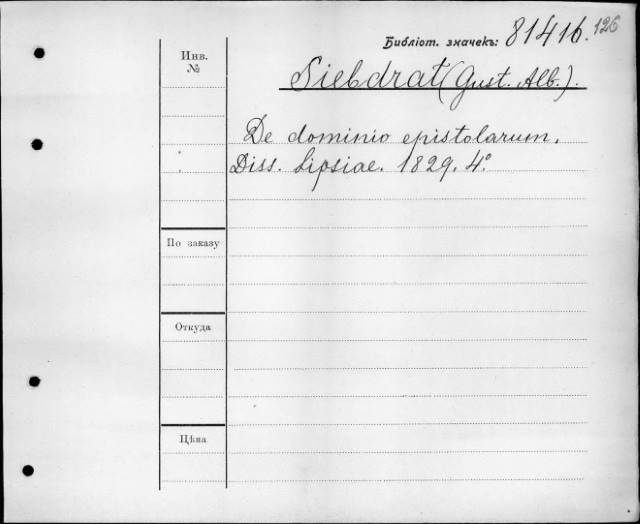 Библіот. значекъ: 81416. 126
Инв. №
Siebdrat (Gust. Alb.).
De dominio epistolarum.
Diss. Lipsiae. 1829. 4°
По заказу
Откуда
Цѣна